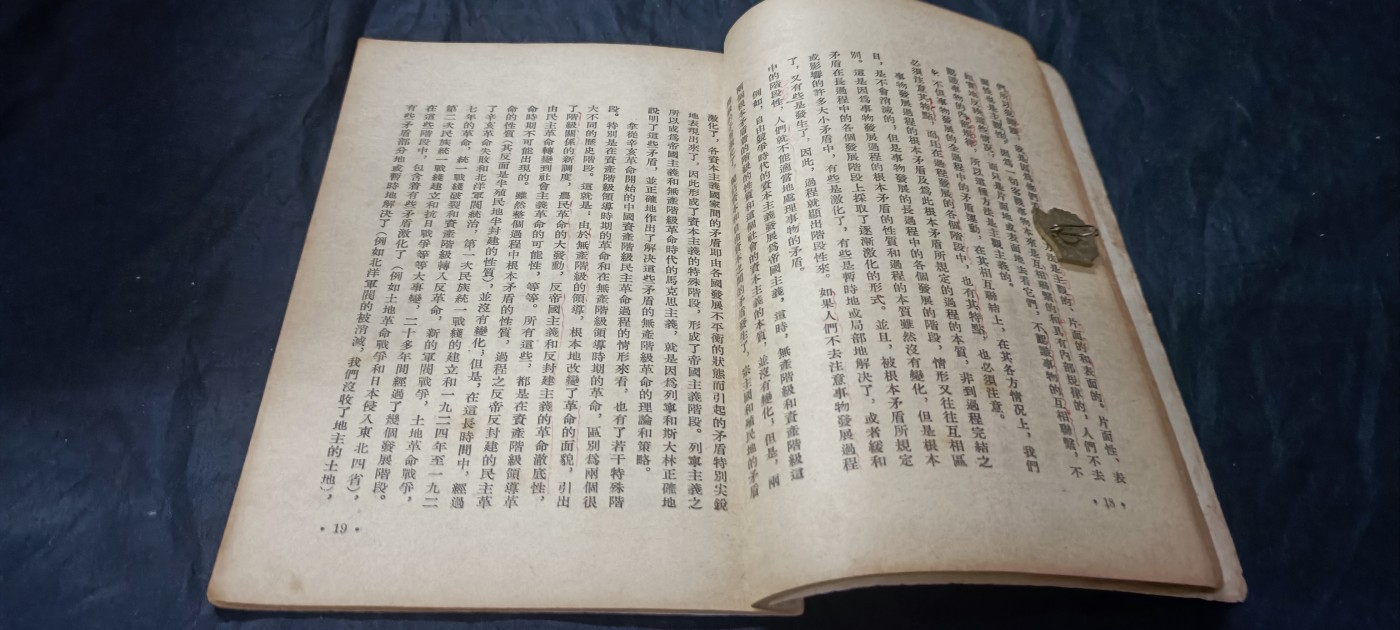 們所以犯錯誤，就是因爲他們 方法是主觀的、片面的和表面的。片面性、表
面性也是主觀性，因爲一切客觀事物本來是互相聯繫的和具有內部規律的，人們不去
如實地反映這些情況，而只是片面地或表面地去看它們，不認識事物的互相聯繫，不
認識事物的內部規律，所以這種方法是主觀主義的。
不但事物發展的全過程中的矛盾運動，在其相互聯結上，在其各方情況上，我們
必須注意其特點，而且在過程發展的各個階段中，也有其特點，也必須注意。
事物發展過程的根本矛盾及爲此根本矛盾所規定的過程的本質，非到過程完結之
日，是不會消滅的；但是事物發展的長過程中的各個發展的階段，情形又往往互相區
別。這是因爲事物發展過程的根本矛盾的性質和過程的本質雖然沒有變化，但是根本
矛盾在長過程中的各個發展階段上採取了逐漸激化的形式。並且，被根本矛盾所規定
或影響的許多大小矛盾中，有些是激化了，有些是暫時地或局部地解決了，或者緩和
了，又有些是發生了，因此，過程就顯出階段性來。如果人們不去注意事物發展過程
中的階段性，人們就不能適當地處理事物的矛盾。
例如，自由競爭時代的資本主義發展爲帝國主義，這時，無產階級和資產階級這
兩個根本矛盾着的階級的性質和這個社會的資本主義的本質，並沒有變化；但是，兩
資本之間的矛盾發生了，宗主國和殖民地的矛盾
• 18 •
激化了，各資本主義國家間的矛盾即由各國發展不平衡的狀態而引起的矛盾特別尖銳
地表現出來了，因此形成了資本主義的特殊階段，形成了帝國主義階段。列寧主義之
所以成爲帝國主義和無產階級革命時代的馬克思主義，就是因爲列寧和斯大林正確地
說明了這些矛盾，並正確地作出了解決這些矛盾的無產階級革命的理論和策略。
拿從辛亥革命開始的中國資產階級民主革命過程的情形來看，也有了若干特殊階
段。特別是在資產階級領導時期的革命和在無產階級領導時期的革命，區別爲兩個很
大不同的歷史階段。這就是：由於無產階級的領導，根本地改變了革命的面貌，引出
了階級關係的新調度，農民革命的大發動，反帝國主義和反封建主義的革命徹底性，
由民主革命轉變到社會主義革命的可能性，等等。所有這些，都是在資產階級領導革
命時期不可能出現的。雖然整個過程中根本矛盾的性質，過程之反帝反封建的民主革
命的性質（其反面是半殖民地半封建的性質），並沒有變化；但是，在這長時間中，經過
了辛亥革命失敗和北洋軍閥統治，第一次民族統一戰綫的建立和一九二四年至一九二
七年的革命，統一戰綫破裂和資產階級轉入反革命，新的軍閥戰爭，土地革命戰爭，
第二次民族統一戰綫建立和抗日戰爭等等大事變，二十多年間經過了幾個發展階段。
在這些階段中，包含着有些矛盾激化了（例如土地革命戰爭和日本侵入東北四省），
有些矛盾部分地或暫時地解決了（例如北洋軍閥的被消滅，我們沒收了地主的土地），
• 19 •